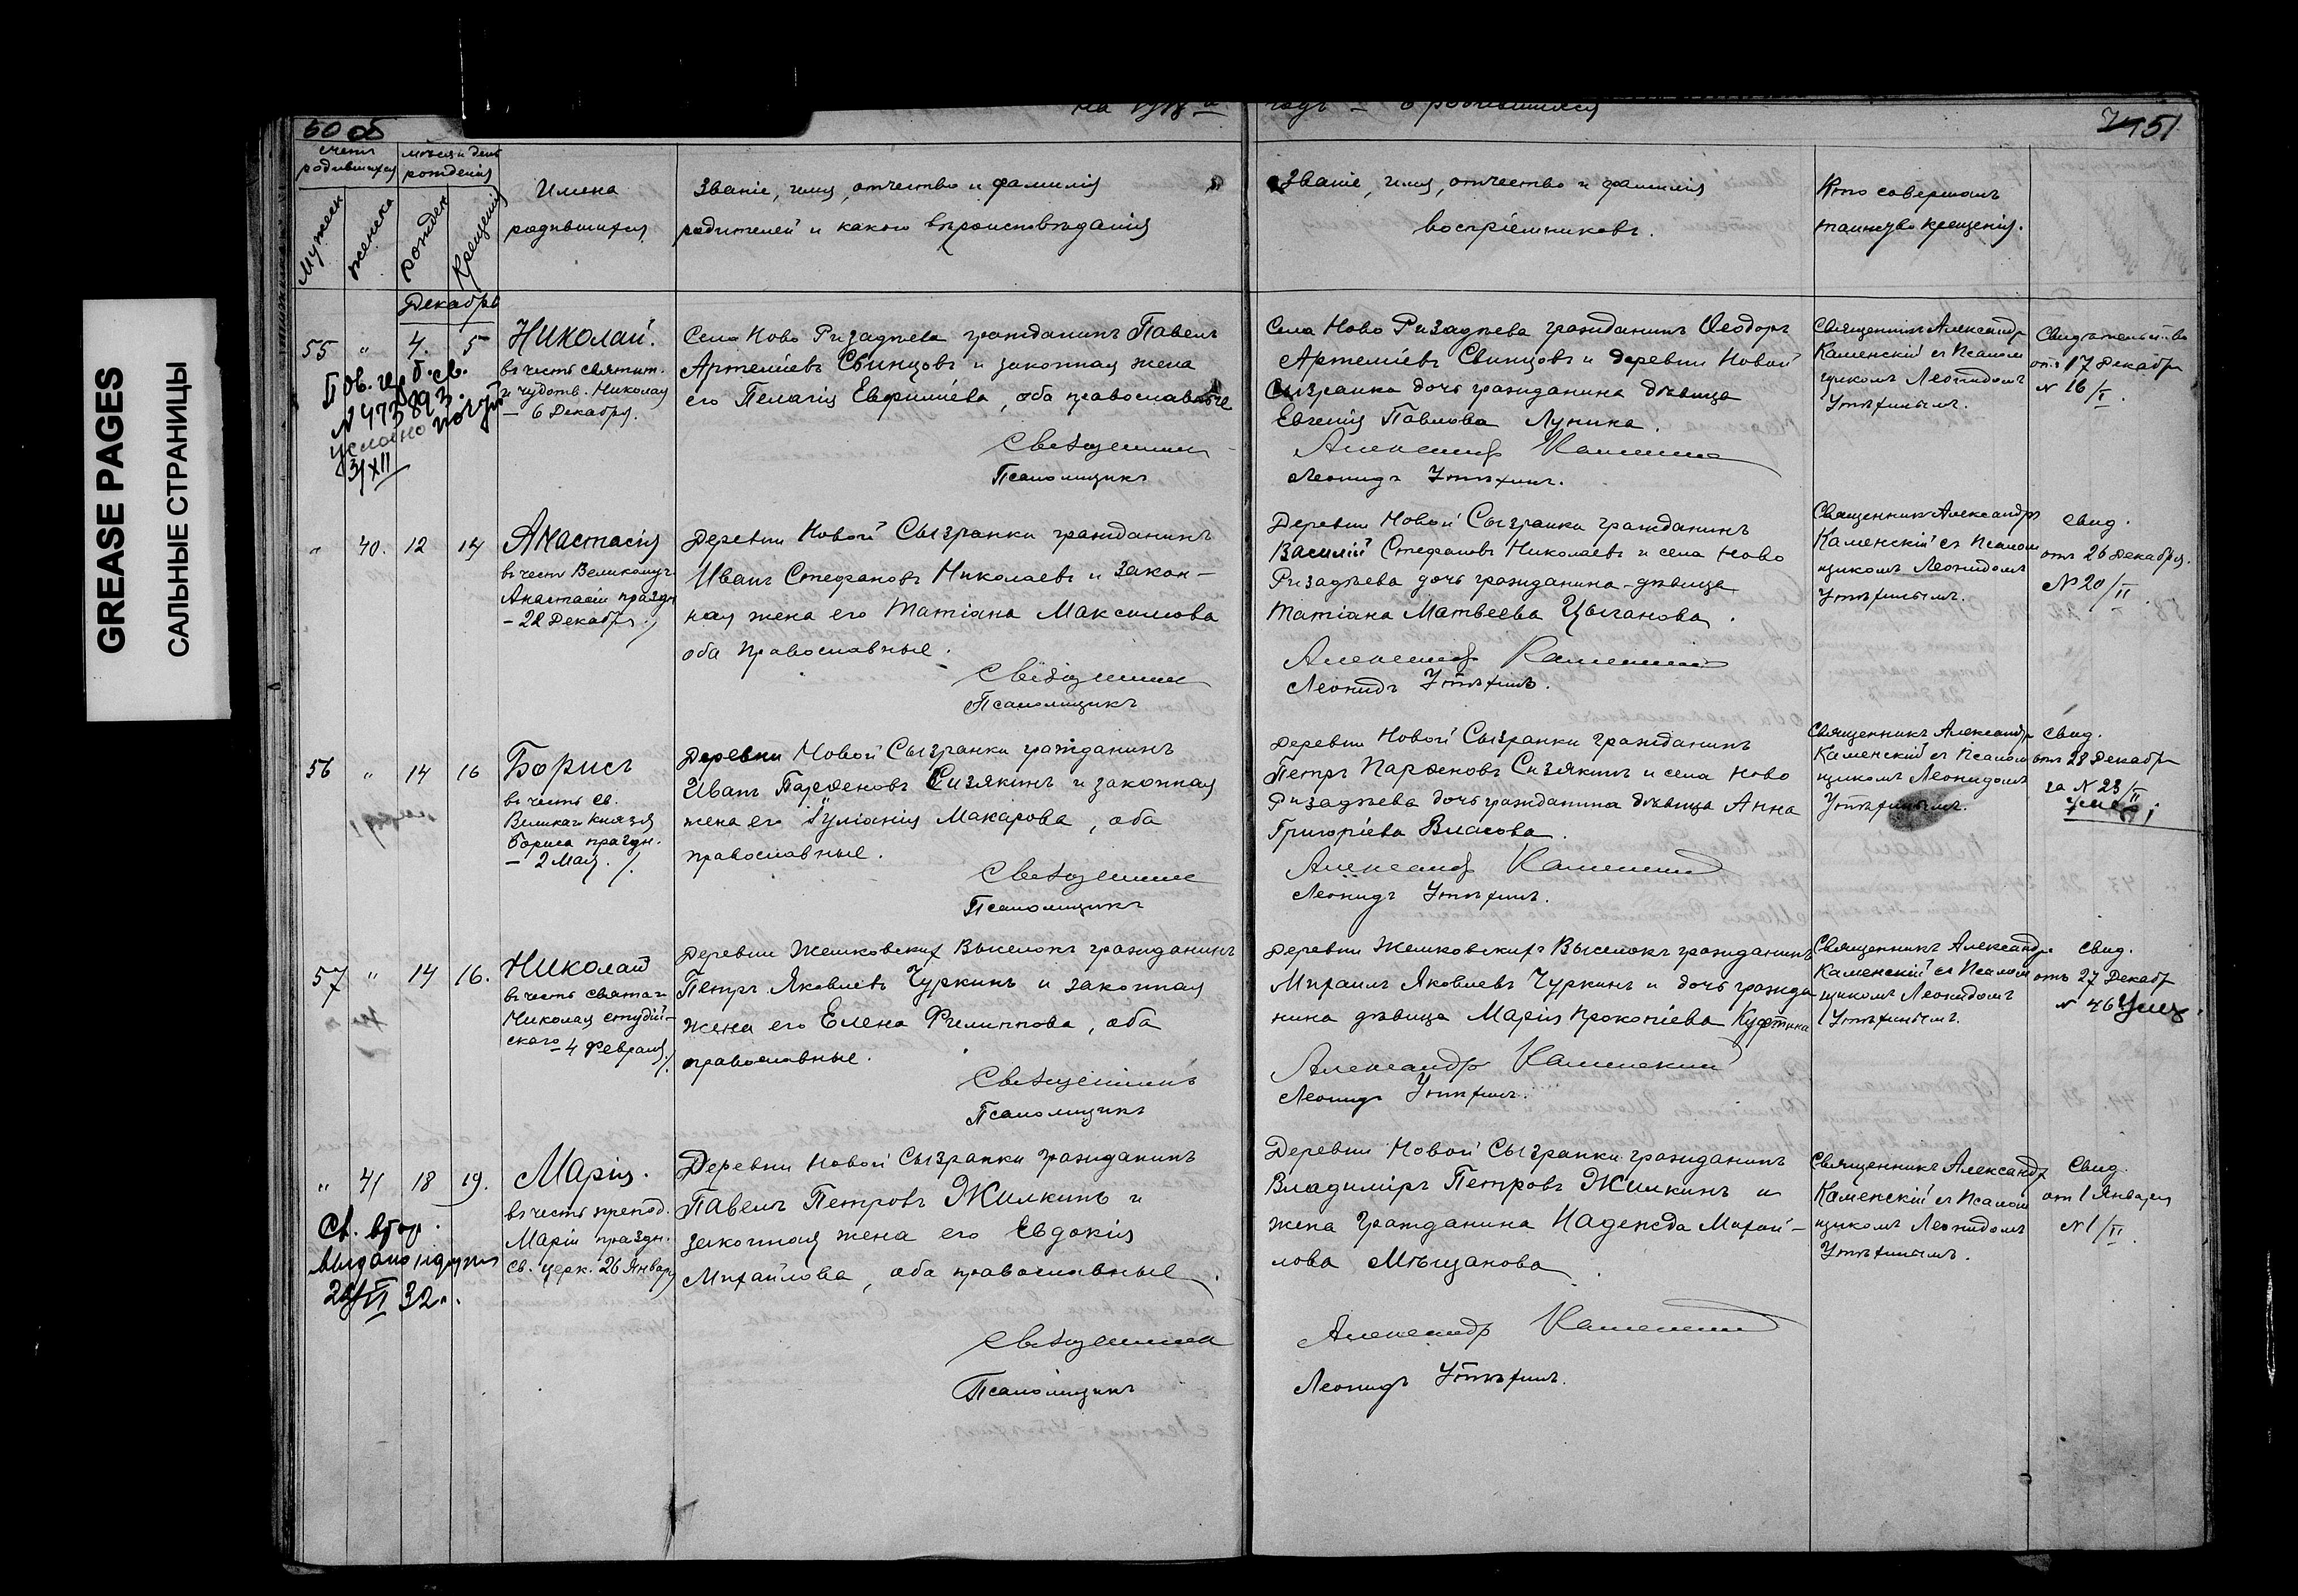 GREASE PAGES
САЛЬНЫЕ СТРАНИЦЫ
50 об
51
родившихся
рожденія
Имена
родившихся
Званіе, имя, отчество и фамилія
родителей и какого вѣроисповѣданія
Званіе, имя, отчество и фамилія
воспріемниковъ.
Кто совершалъ
таинство крещенія.
Декабрь
55 " 4. 5
Николай.
въ честь святит.
и чудотв. Николая
– 6 Декабря.
Села Ново Ризадѣева гражданинъ Павелъ
Артеміевъ Свинцовъ и законная жена
его Пелагія Евфиміева, оба православные
Священникъ
Псаломщикъ
Села Ново Ризадѣева гражданинъ Ѳеодоръ
Артеміевъ Свинцовъ и деревни Новой
Сызранки дочь гражданина дѣвица
Евгенія Павлова Лунина.
Александръ Каменскій
Леонидъ Утѣхинъ.
Священникъ Александръ
Каменскій съ Псалом
щикомъ Леонидомъ
Утѣхинымъ.
Свидѣтельство
отъ 17 Декабря
№ 16/I.
31/XII
" 40. 12 14
Анастасія
въ честь Великомуч.
Анастасіи праздн
– 22 Декабря
Деревни Новой Сызранки гражданинъ
Иванъ Стефановъ Николаевъ и закон–
ная жена его Татіана Максимова
оба православные.
Священникъ
Псаломщикъ
Деревни Новой Сызранки гражданинъ
Василій Стефановъ Николаевъ и села Ново
Ризадѣева дочь гражданина-дѣвица
Татіана Матвеева Цыганова.
Александръ Каменскій
Леонидъ Утѣхинъ.
Священникъ Александръ
Каменскій съ Псалом
щикомъ Леонидомъ
Утѣхинымъ.
Свид.
отъ 26 Декабря.
№ 20/II
56 " 14 16
Борисъ
въ честь св.
Великаг Князя
Бориса праздн.
– 2 Мая.
Деревни Новой Сызранки гражданинъ
Иванъ Парѳеновъ Сизякинъ и законная
жена его Іуліанія Макарова, оба
православные.
Священникъ
Псаломщикъ
Деревни Новой Сызранки гражданинъ
Петръ Парѳеновъ Сизякинъ и села Ново
Ризадѣева дочь гражданина дѣвица Анна
Григоріева Власова.
Александръ Каменскій
Леонидъ Утѣхинъ.
Священникъ Александръ
Каменскій съ Псалом
щикомъ Леонидомъ
Утѣхинымъ.
Свид.
отъ 28 Декабря
за № 23/II
57 " 14 16.
Николай
въ честь святаг
Николая студій–
скаго – 4 Февраля.
Деревни Жемковских Выселокъ гражданинъ
Петръ Яковлевъ Чуркинъ и законная
жена его Елена Филиппова, оба
православные.
Священникъ
Псаломщикъ
Деревни Жемковскихъ Выселокъ гражданинъ
Михаилъ Яковлевъ Чуркинъ и дочь гражда
нина дѣвица Марія Прокопіева Куфтина
Александръ Каменскій
Леонидъ Утѣхинъ.
Священникъ Александръ
Каменскій съ Псалом
щикомъ Леонидомъ
Утѣхинымъ.
Свид.
отъ 27 Декабр
№ 46
" 41 18 19.
Марія.
въ честь препод.
Маріи праздн.
св. церк. 26 Январ
Деревни Новой Сызранки гражданинъ
Павелъ Петровъ Жилкинъ и
законная жена его Евдокія
Михайлова, оба православные.
Священникъ
Псаломщикъ
Деревни Новой Сызранки гражданинъ
Владиміръ Петровъ Жилкинъ и
жена гражданина Надежда Михай–
лова Мѣщанова.
Александръ Каменскій
Леонидъ Утѣхинъ.
Священникъ Александр
Каменскій съ Псалом
щикомъ Леонидомъ
Утѣхинымъ.
Свид.
от 1 Января
№ 1/II.
Св. втор.